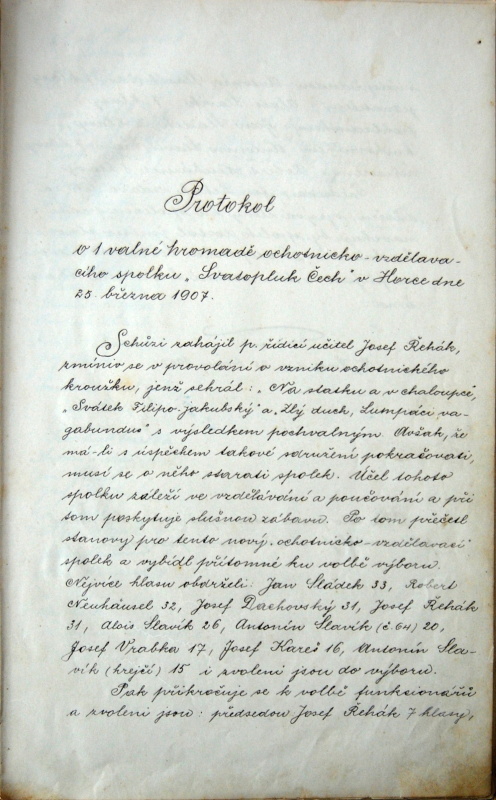 Protokol
o 1 valné hromadě ochotnicko-vzdělava-
cího spolku „Svatopluk Čech" v Horce dne
25. března 1907.
Schůzi zahájil p. řídící učitel Josef Řehák,
zmíniv se v provolání o vzniku ochotnického
kroužku, jenž sehrál: „Na statku a v chaloupce",
„Svátek Filipo-jakubský" a „Zlý duch, Lumpáci va-
gabundus" s výsledkem pochvalným. Avšak, že
má-li s úspěchem takové sdružení pokračovati,
musí se o něho starati spolek. Účel tohoto
spolku záleží ve vzdělávání a poučování a při
tom poskytuje slušnou zábavu. Po tom přečetl
stanovy pro tento nový „ochotnicko-vzdělavací"
spolek a vybídl přítomné ku volbě výboru.
Nejvíce hlasu obdrželi: Jan Sládek 33, Robert
Neuhäusel 32, Josef Dachovský 31, Josef Řehák
31, Alois Slavík 26, Antonín Slavík (č. 64) 20,
Josef Vrabka 17, Josef Kareš 16, Antonín Sla-
vík (krejčí) 15 i zvoleni jsou do výboru.
Pak přikročuje se k volbě funkcionářů
a zvoleni jsou: předsedou Josef Řehák 7 hlasy,